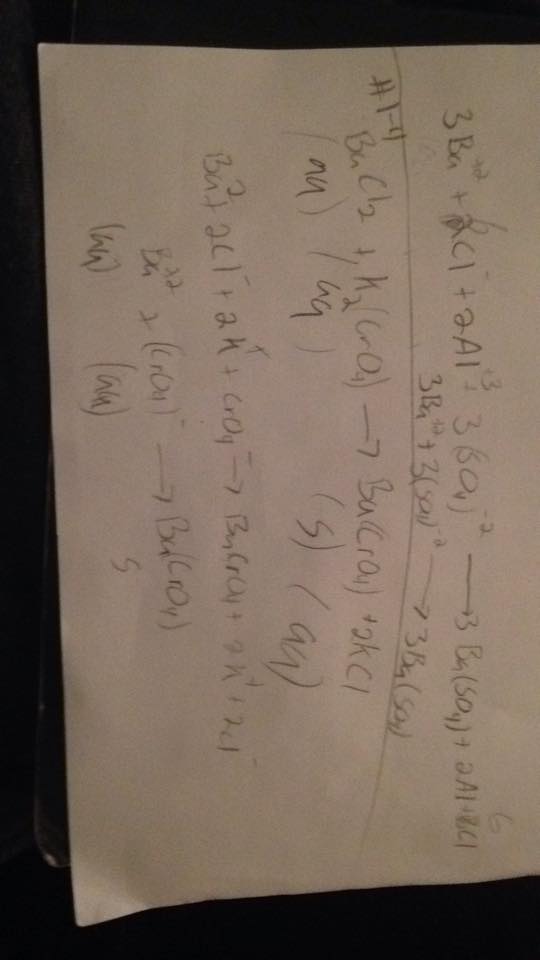 3Ba⁺² + 6Cl⁻ + 2Al⁺³ + 3(SO₄)⁻² → 3Ba(SO₄) + 2Al + 6Cl
3Ba⁺² + 3(SO₄)⁻² → 3Ba(SO₄)
#1-4
BaCl₂ + K₂(CrO₄) → Ba(CrO₄) + 2KCl
(aq) (aq) (s) (aq)
Ba²⁺ + 2Cl⁻ + 2K⁺ + CrO₄⁻ → BaCrO₄ + 2K⁺ + 2Cl⁻
Ba⁺² + (CrO₄)⁻ → Ba(CrO₄)
(aq) (aq) s